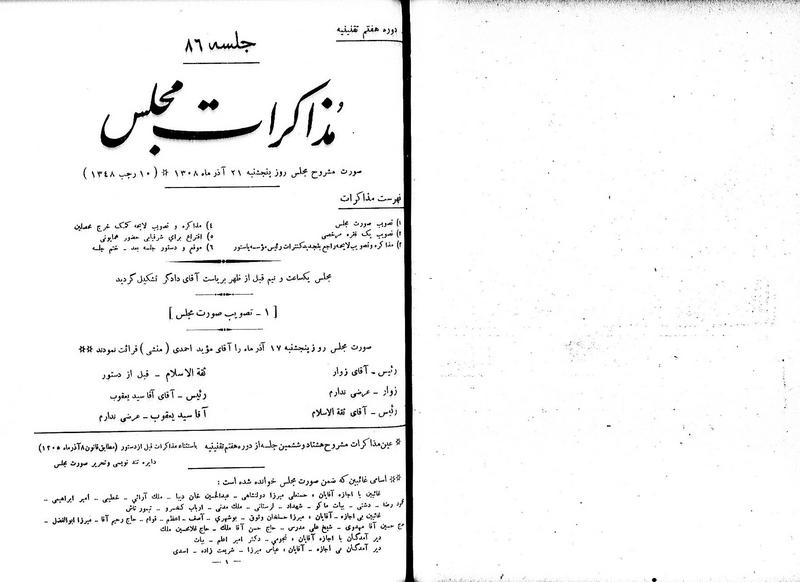 دوره هفتم تقنینیه
جلسه ۸۶
مذاکرات مجلس
صورت مشروح مجلس روز پنجشنبه ۲۱ آذر ماه ۱۳۰۸ * (۱۰ رجب ۱۳۴۸)
فهرست مذاکرات
۱) تصویب صورت مجلس
۲) تصویب یک فقره مرخصی
۳) مذاکره و تصویب لایحه راجع بتجدید کنترات رئیس مؤسسه پاستور
۴) مذاکره و تصویب لایحه کمک خرج محصلین
۵) اقتراع برای شرفیابی حضور همایونی
۶) موقع و دستور جلسه بعد - ختم جلسه
مجلس یکساعت و نیم قبل از ظهر بریاست آقای دادگر تشکیل گردید
[ ۱ - تصویب صورت مجلس ]
صورت مجلس روز پنجشنبه ۱۷ آذر ماه را آقای مؤید احمدی (منشی) قرائت نمودند **
رئیس - آقای زوار
زوار - عرضی ندارم
رئیس - آقای ثقة الاسلام
ثقة الاسلام - قبل از دستور
رئیس - آقای آقا سید یعقوب
آقا سید یعقوب - عرضی ندارم
* عین مذاکرات مشروح هشتاد و ششمین جلسه از دوره هفتم تقنینیه باستثناء مذاکرات قبل از دستور (مطابق قانون ۸ آذر ماه ۱۳۰۵)
دایره تند نویسی و تحریر صورت مجلس
** اسامی غائبین که ضمن صورت مجلس خوانده شده است :
غائبین با اجازه آقایان : حسنعلی میرزا دولتشاهی - عبدالحسین خان دیبا - ملک آرائی - خطیبی - امیر ابراهیمی -
محمود رضا - دشتی - بیات ماکو - شهداد - لرستانی - ملک مدنی - ارباب کیخسرو - تیمور تاش
غائبین بی اجازه - آقایان : میرزا حسنخان وثوق - بوشهری - آصف - اعظم - قوام - حاج رحیم آقا - میرزا ابوالفضل -
حاج حسین آقا مهدوی - شیخ علی مدرس - حاج حسن آقا ملک - حاج غلامحسین ملک
دیر آمدگان با اجازه آقایان : نجومی - دکتر امیر اعلم - بیات
دیر آمدگان بی اجازه - آقایان : عباس میرزا - شریعت زاده - اسدی
— ۱ —